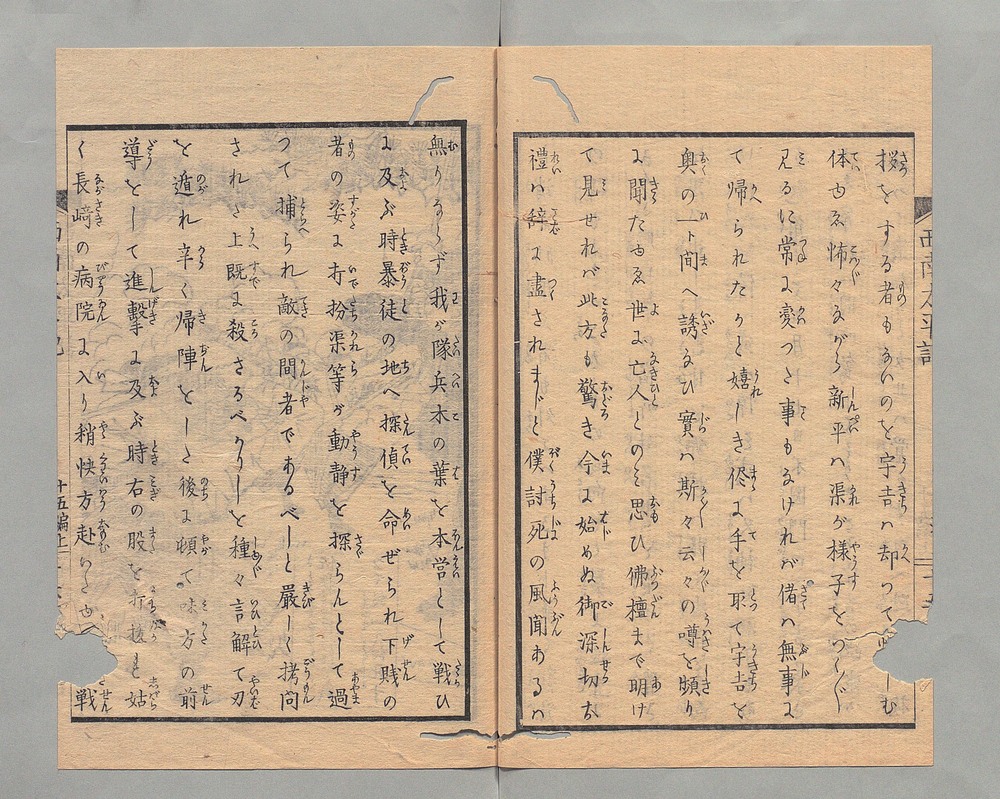 拶をする者もあいのを宇𠮷ハ却つて
体ゆゑ怖々ながら新平ハ渠が様子をつく〲
見るに常に変つた事もなけれバ偖ハ無事に
て帰られたりと嬉しき侭に手を取て宇𠮷を
奥の一ト間へ誘なひ實ハ斯々云々の噂を頻り
に聞たゆゑ世に亡人とのミ思ひ佛檀まで明け
て見せれバ此方も驚き今に始めぬ御深切お
禮ハ辞に盡されまじと僕討死の風聞あるハ
無りならず我が隊兵木の葉を本営として戦ひ
に及ぶ時暴徒の地へ探偵を命ぜられ下賎の
者の姿に打扮渠等が動静を探らんとして過
つて捕られ敵の間者であるべしと厳しく拷問
された上既に殺さるべかりしを種々言解て刃
を遁れ辛く帰陣をした後に頓て味方の前
導をして進撃に及ぶ時右の股を打抜レ姑
く長﨑の病院に入り稍快方赴りたゆ 戦
西南太平記
十五編上